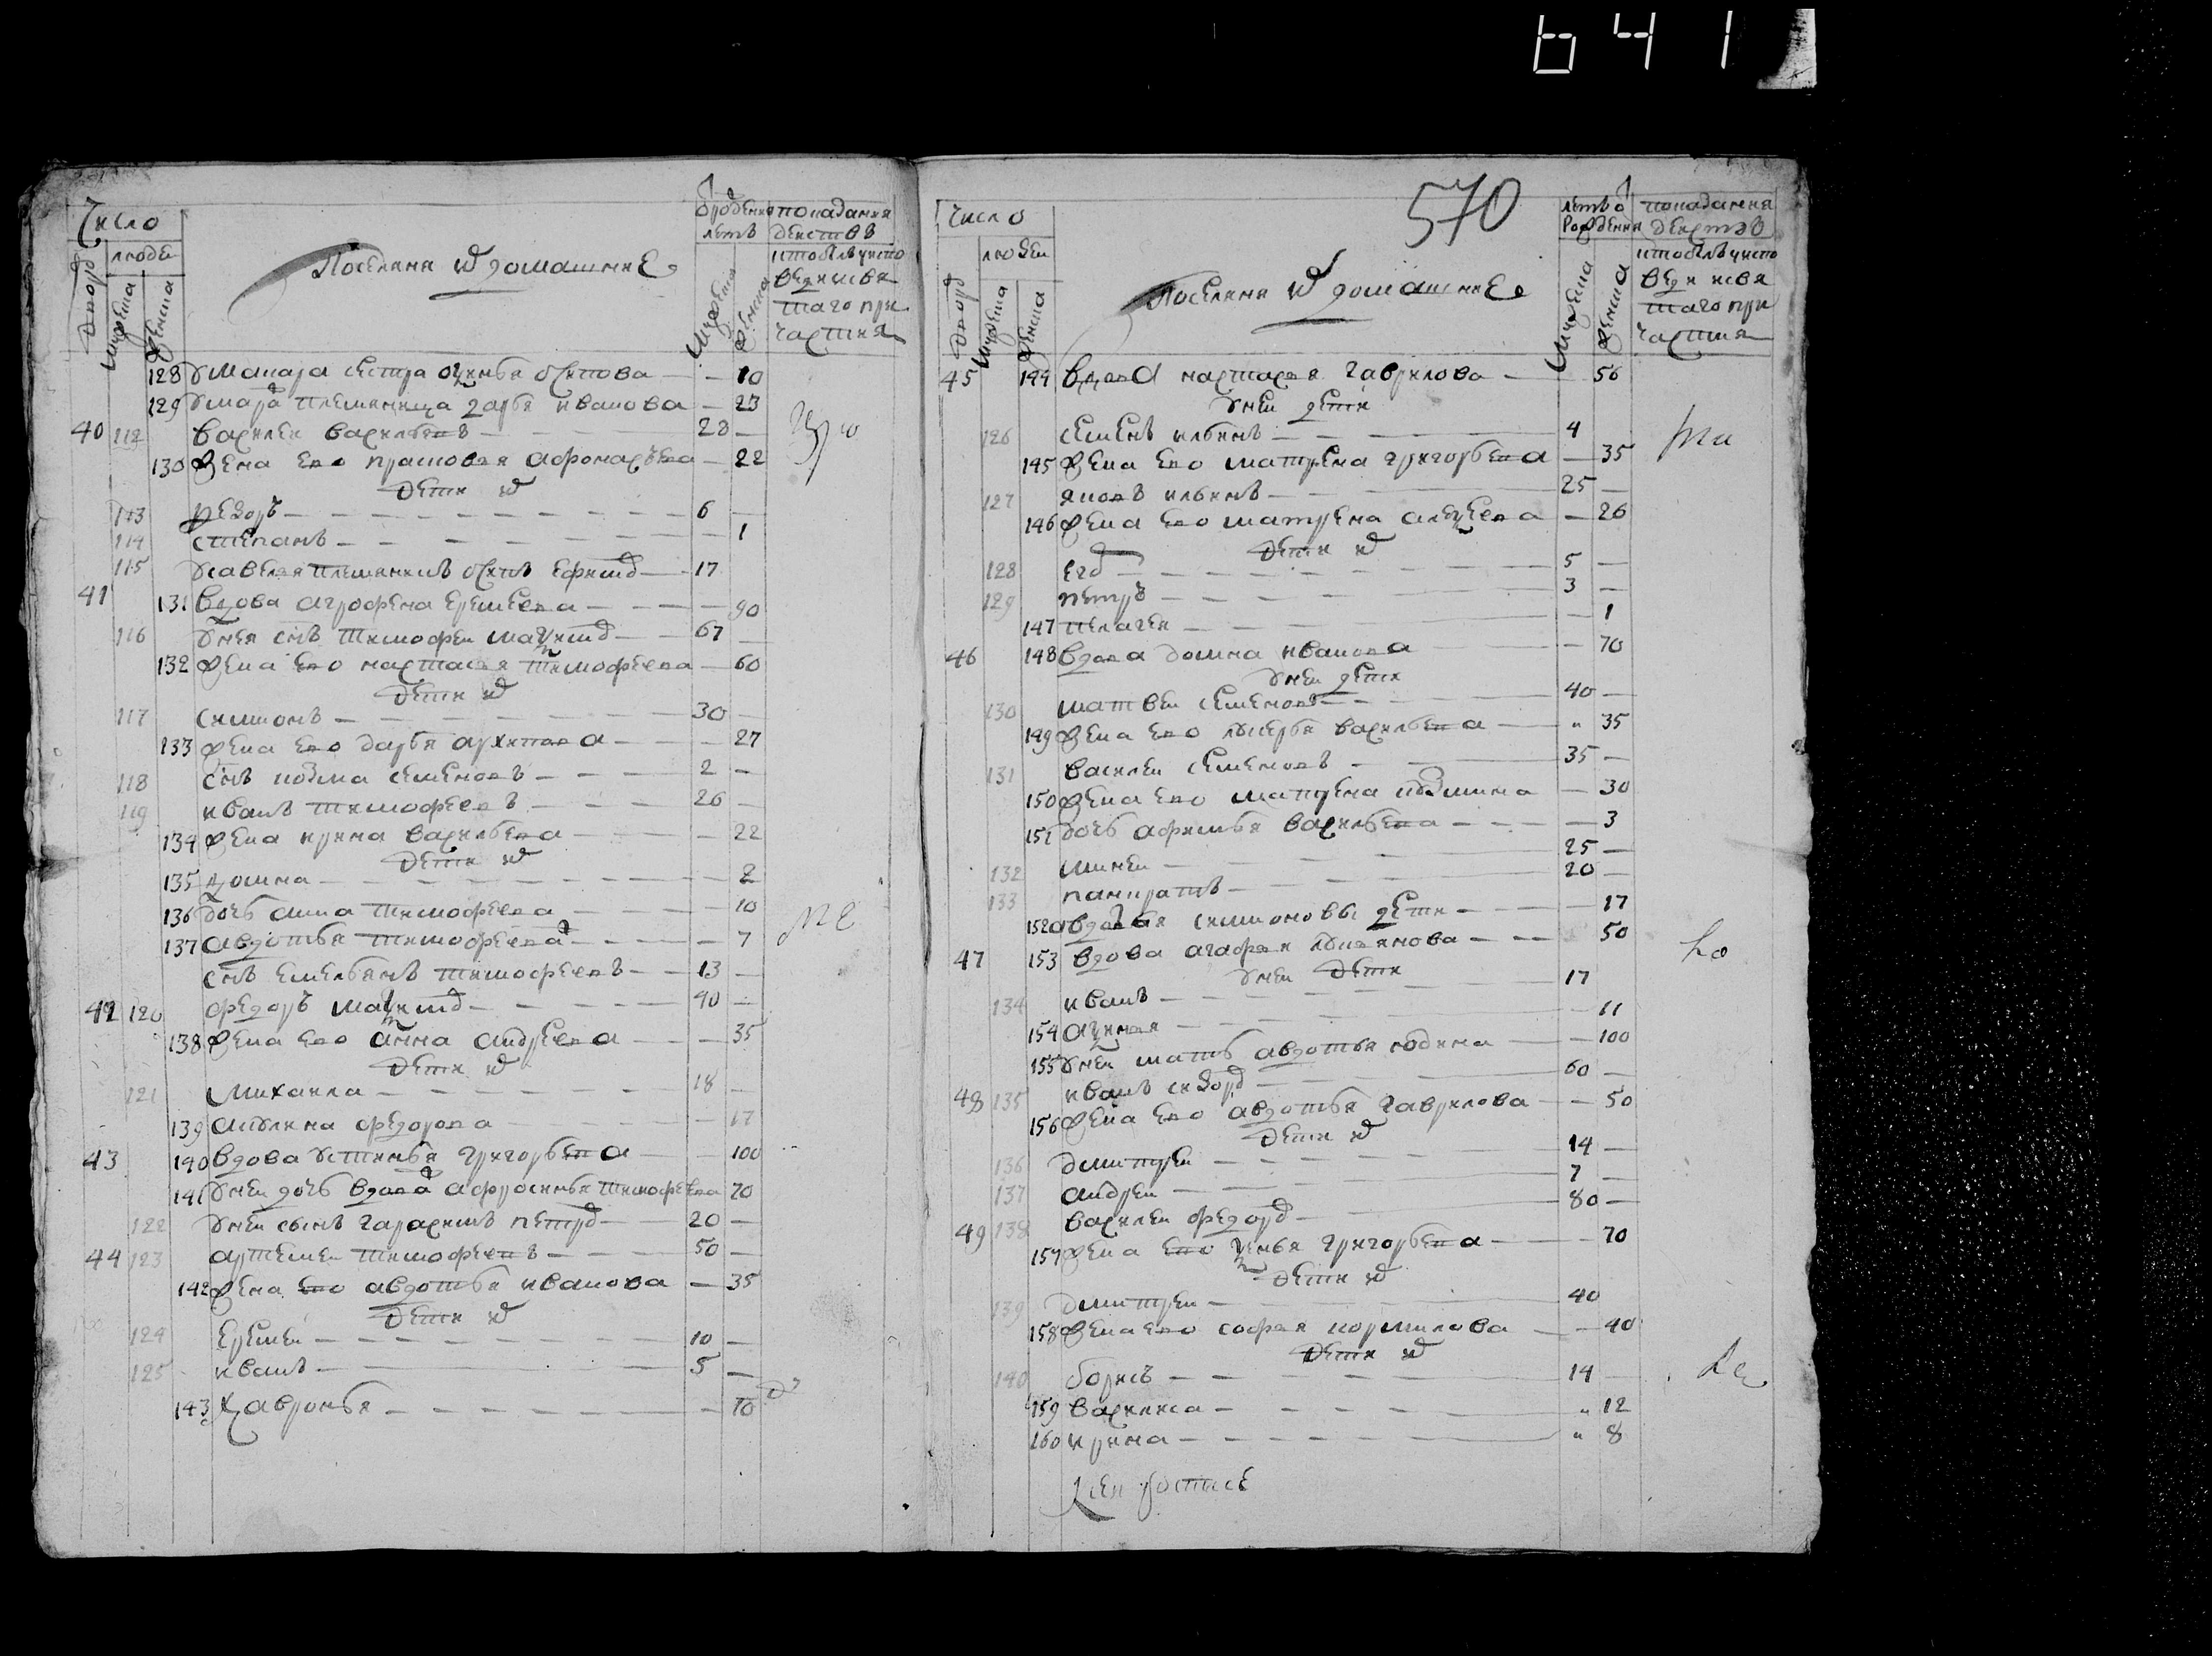 641
Число
людеи
дворов
мужеска
женска
Поселяня и домашние
от рождения
летъ
мужеска
женска
показания
действъ
кто былъ у испо
веди и свя
таго при
частия
128 у макара сестра осипова 10
129 племянница дарья иванова 23
40 112 василеи васильевъ 28
130 жена ево прасковья 22
дети их
113 федоръ 6
114 степанъ 1
115 племянникъ осипъ 17
41 131 вдова агрофена еремеева 90
116 у нея снъ тимофеи 67
132 жена ево настасья тимофеева 60
дети их
117 симионъ 30
133 жена ево дарья архипова 27
118 снъ козма семеновъ 2
119 иванъ тимофеевъ 26
134 жена ирина васильева 22
дети их
135 домна 2
136 дочь анна тимофеева 10
137 авдотья тимофеева 7
снъ емельянъ тимофеевъ 13
42 120 федоръ 40
138 жена ево анна андреева 35
дети их
121 михаила 18
139 акулина федорова 17
43 140 вдова устинья григорьева 100
141 у неи дочь вдова афросинья тимофеева 70
122 у неи сынъ гарасимъ петров 20
44 123 артемеи тимофеевъ 50
142 жена ево авдотья иванова 35
дети их
124 еремеи 10
125 иванъ 5
143 хавронья 10
570
Число
людеи
дворов
мужеска
женска
Поселяня и домашние
летъ от
рождения
мужеска
женска
показания
действъ
кто былъ у испо
веди и свя
таго при
частия
45 144 вдова настасья гаврилова 56
у неи дети
126 семенъ ильинъ 4
145 жена ево матрена григорьева 35
127 яковъ ильинъ 25
146 жена ево матрена алексеева 26
дети их
128 егор 5
129 петръ 3
147 пелагея 1
46 148 вдова домна иванова 70
у неи дети
130 матвеи семеновъ 40
149 жена ево лукерья васильева " 35
131 василеи семеновъ 35
150 жена ево матрена козмина 30
151 дочь афимья васильева 3
132 минеи 25
133 панкратъ 20
152 авдотья симионовы дети 17
47 153 вдова агафья лукьянова 50
у неи дети
134 иванъ 17
154 аксинья 11
155 у неи мать авдотья 100
48 135 иванъ сидоров 60
156 жена ево авдотья гаврилова 50
дети их
136 дмитреи 14
137 андреи 7
49 138 василеи федоров 80
157 жена ево ксенья григорьева 70
дети их
139 дмитреи 40
158 жена ево софья корнилова 40
дети их
140 борисъ 14
159 василиса " 12
160 ирина " 8